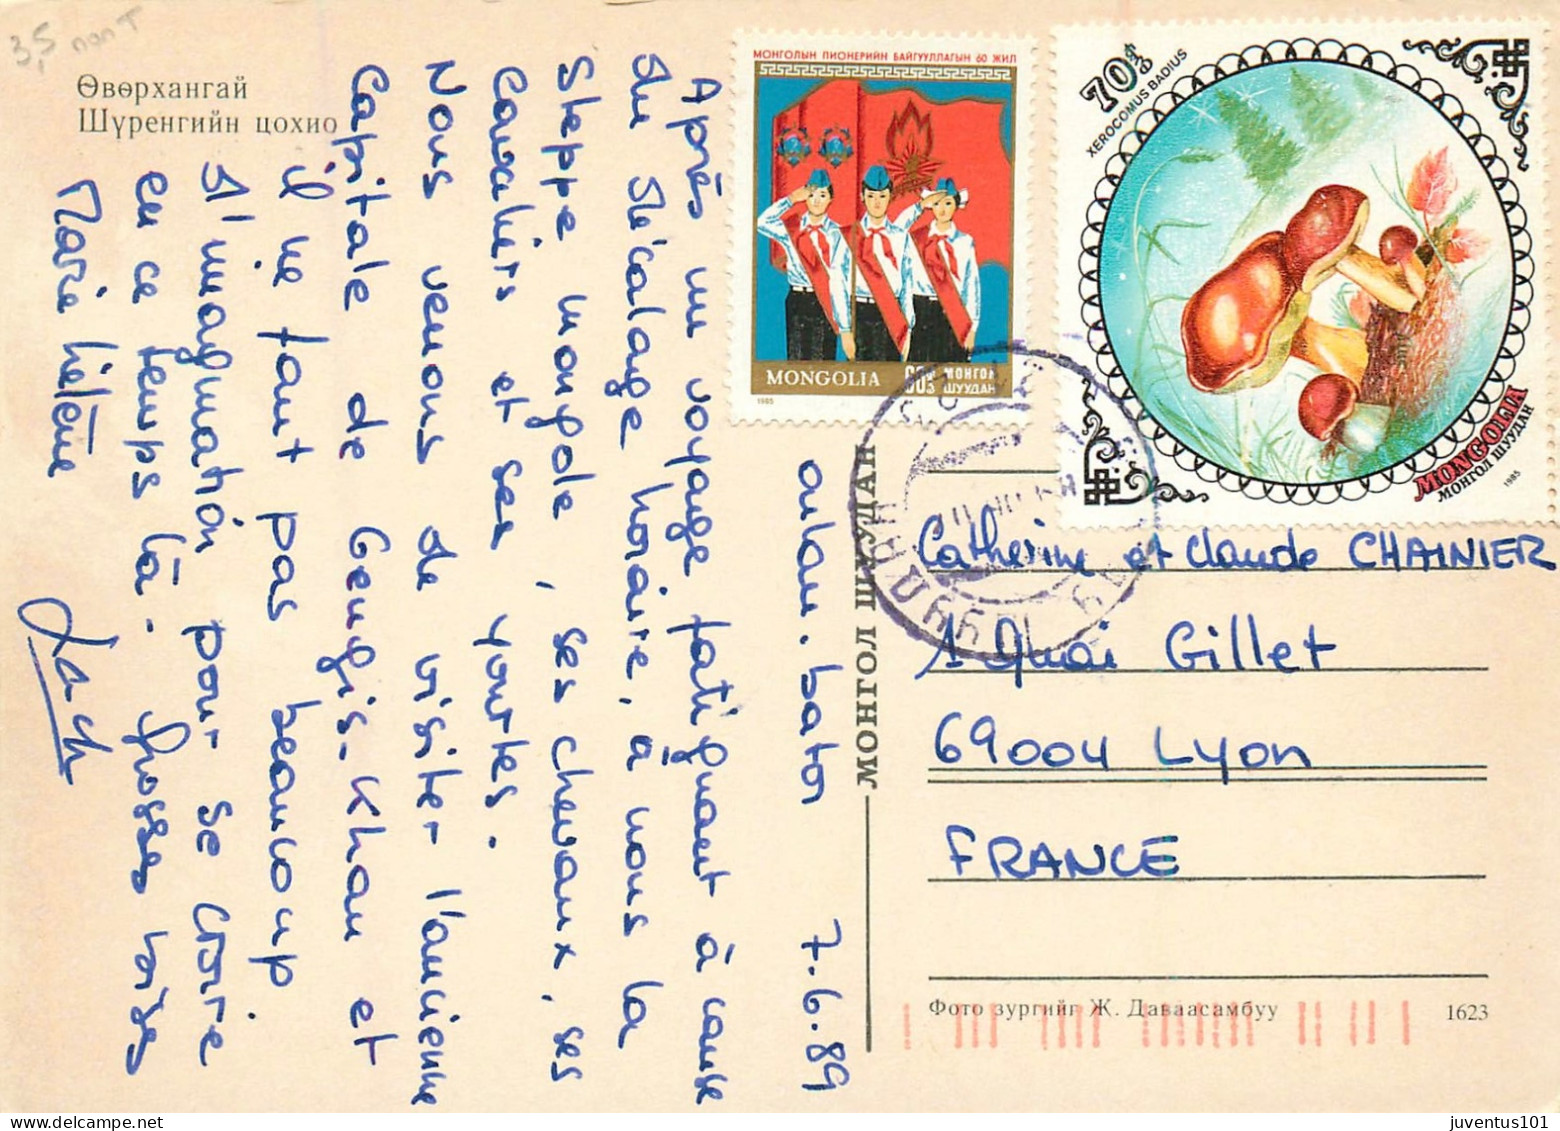 3,5
Өвөрхангай
Шүренгийн цохио
oulan. bator 7.6.89
Après un voyage fatiguant à cause
du décalage horaire, à nous la
Steppe mongole, ses chevaux, ses
Cavaliers et ses yourtes.
Nous venons de visiter l'ancienne
Capitale de Gengis-Khan et
il ne faut pas beaucoup
d'imagination pour se croire
en ce temps là. Grosses bises
Marie Hélène
МОНГОЛЫН ПИОНЕРИЙН БАЙГУУЛЛАГЫН 60 ЖИЛ
MONGOLIA
60
МОНГОЛ
ШУУДАН
1985
70
XEROCOMUS BADIUS
MONGOLIA
МОНГОЛ ШУУДАН
1985
МОНГОЛ ШУУДАН
Catherine et Claude CHAINIER
1 Quai Gillet
69004 Lyon
FRANCE
Фото зургийг Ж. Даваасамбуу
1623
juventus101